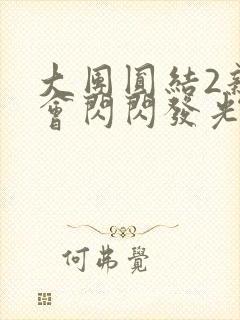 大團圓結2新
會閃閃發光
何弗覺